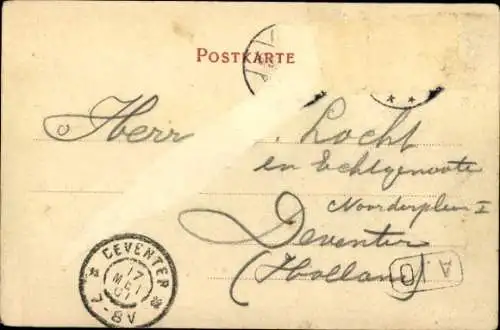 POSTKARTE
Herr Locht
en Echtgenoote
Noorderplein I
Deventer
(Holland)
DEVENTER
17
MEI
01
7-8V
A